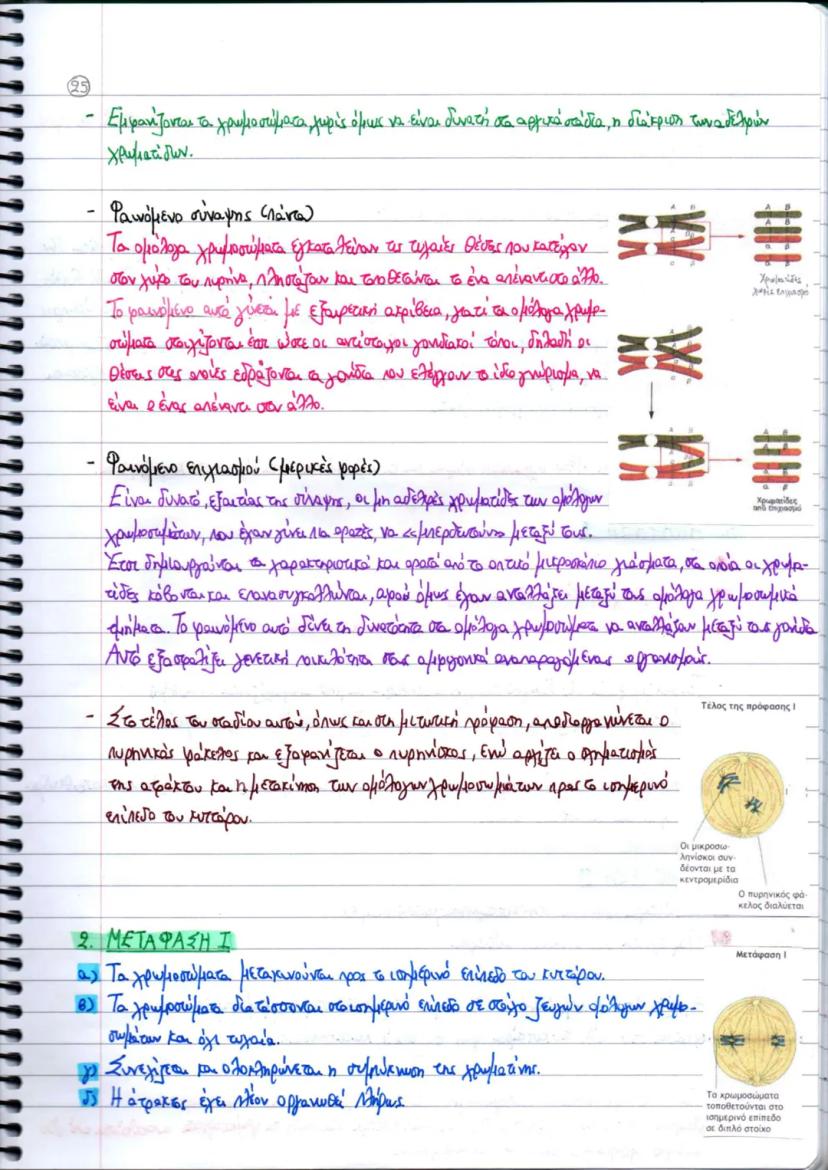 25
- Εμφανίζονται τα χρωμοσώματα, χωρίς όμως να είναι δυνατή στα αρχικά στάδια, η διάκριση των αδελφών
χρωματίδων.
- Φαινόμενο σύναψης (πάντα)
Τα ομόλογα χρωμοσώματα εγκαταλείπουν τις τυχαίες θέσεις που κατείχαν
στον χώρο του πυρήνα, πλησιάζουν και τοποθετούνται το ένα απέναντι στο άλλο.
Το φαινόμενο αυτό γίνεται με εξαιρετική ακρίβεια, γιατί τα ομόλογα χρωμο-
σώματα στοιχίζονται έτσι ώστε οι αντίστοιχοι γονιδιακοί τόποι, δηλαδή οι
θέσεις στις οποίες εδράζονται τα γονίδια που ελέγχουν το ίδιο γνώρισμα, να
είναι ο ένας απέναντι στον άλλο.
Χρωματίδες
χωρίς επιχιασμό
- Φαινόμενο επιχιασμού (μερικές φορές)
Είναι δυνατό, εξαιτίας της σύναψης, οι μη αδελφές χρωματίδες των ομόλογων
χρωμοσωμάτων, που έχουν γίνει πια ορατές, να «μπερδευτούν» μεταξύ τους.
Έτσι δημιουργούνται τα χαρακτηριστικά και ορατά από το οπτικό μικροσκόπιο χιάσματα, στα οποία οι χρωμα-
τίδες κόβονται και επανασυγκολλώνται, αφού όμως έχουν ανταλλάξει μεταξύ τους ομόλογα χρωμοσωμικά
τμήματα. Το φαινόμενο αυτό δίνει τη δυνατότητα στα ομόλογα χρωμοσώματα να ανταλλάξουν μεταξύ τους γονίδια
Αυτό εξασφαλίζει γενετική ποικιλότητα στους αμφιγονικά αναπαραγόμενους οργανισμούς.
Χρωματίδες
από επιχιασμό
- Στο τέλος του σταδίου αυτού, όπως και στη μιτωτική πρόφαση, αποδιοργανώνεται ο
πυρηνικός φάκελος και εξαφανίζεται ο πυρηνίσκος, ενώ αρχίζει ο σχηματισμός
της ατράκτου και η μετακίνηση των ομόλογων χρωμοσωμάτων προς το ισημερινό
επίπεδο του κυττάρου.
Τέλος της πρόφασης Ι
Οι μικροσω-
ληνίσκοι συν-
δέονται με τα
κεντρομερίδια
Ο πυρηνικός φά-
κελος διαλύεται
2. ΜΕΤΑΦΑΣΗ Ι
α) Τα χρωμοσώματα μετακινούνται προς το ισημερινό επίπεδο του κυττάρου.
β) Τα χρωμοσώματα διατάσσονται στο ισημερινό επίπεδο σε στοίχο ζευγών ομόλογων χρωμο-
σωμάτων και όχι τυχαία.
γ) Συνεχίζεται και ολοκληρώνεται η συμπύκνωση της χρωματίνης.
δ) Η άτρακτος έχει πλέον οργανωθεί πλήρως.
Μετάφαση Ι
Τα χρωμοσώματα
τοποθετούνται στο
ισημερινό επίπεδο
σε διπλό στοίχο